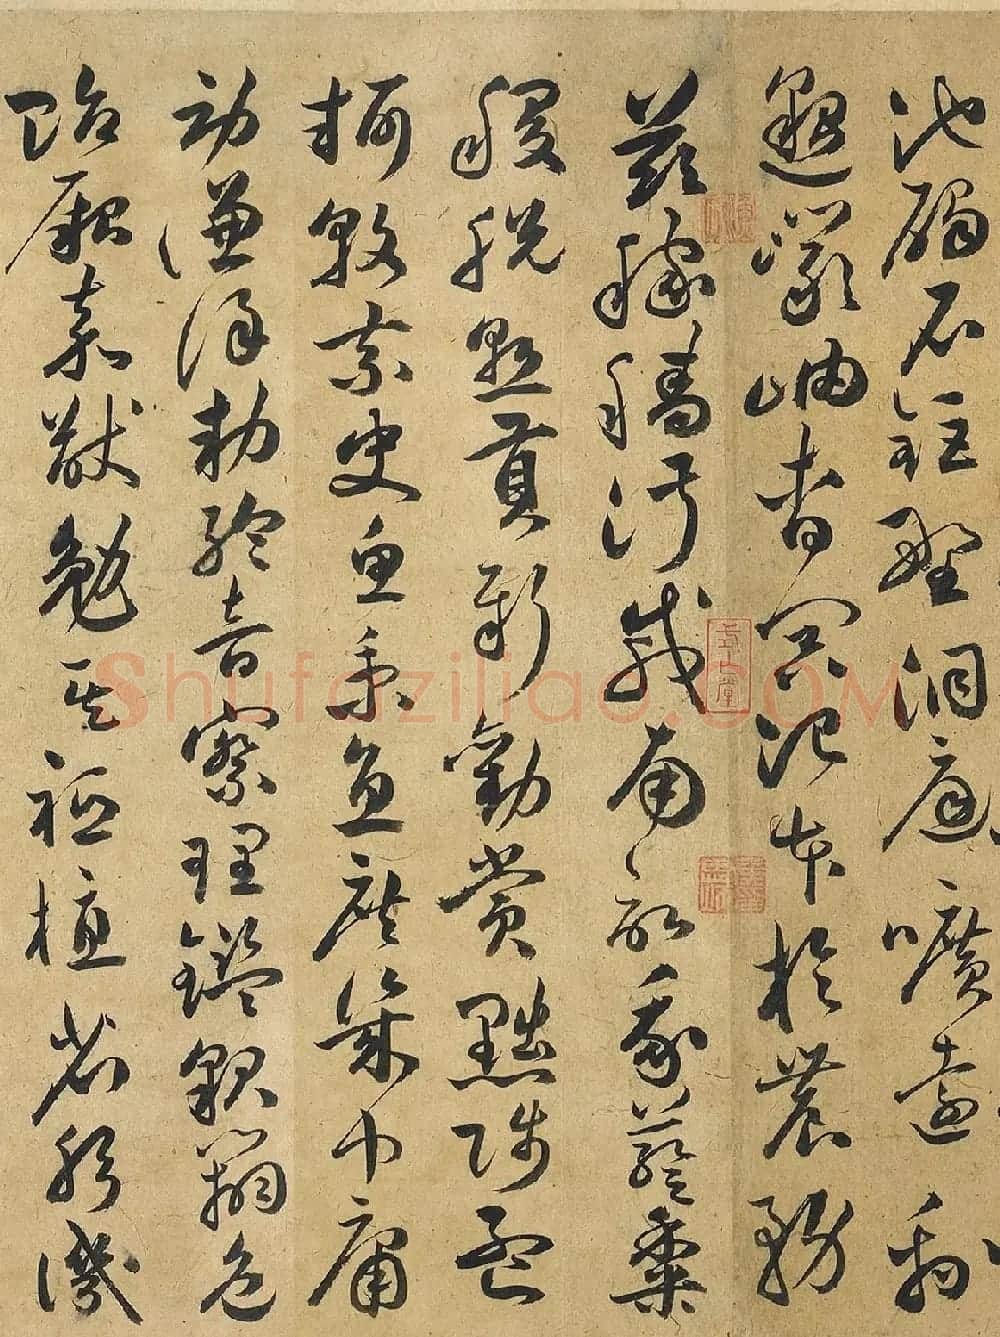 池碣石鉅野洞庭曠遠綿
邈巖岫杳冥治本於農務
茲稼穡俶載南畝我藝黍
稷稅熟貢新勸賞黜陟孟
軻敦素史魚秉直庶幾中庸
勞謙謹敕聆音察理鑑貌辨色
貽厥嘉猷勉其祗植省躬譏
Shufaziliao.COM